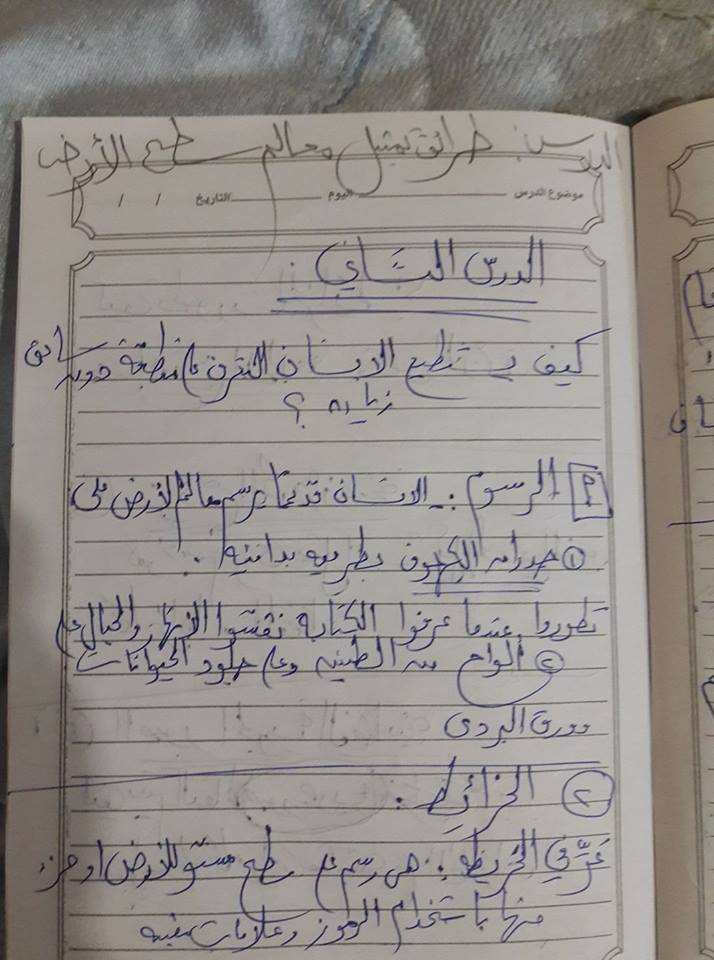 الدرس: طرائق تمثيل معالم سطح الأرض
موضوع الدرس اليوم التاريخ / /
الدرس الثاني :
كيف يستطيع الانسان التعرف على منطقة دون
زيارته ؟
الرسوم :- الانسان قديماً يرسم معالم الأرض على
① جدران الكهوف بطريقه بدائيه .
تطوروا عندما عرفوا الكتابه نقشوا الانهار والجبال على
② الواح من الطين وعلى جلود الحيوانات
وورق البردى
② الخرائط .
عرّفي الخريطه :. هي رسم على سطح مستو للأرض او جزء
منها باستخدام الرموز وعلامات معينه